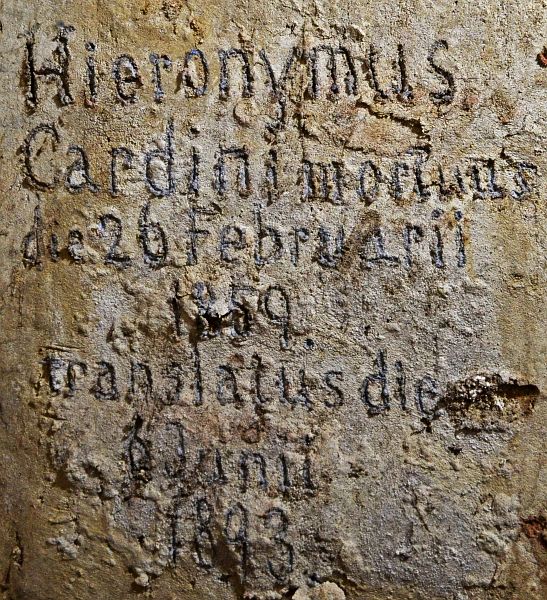 Hieronymus
Cardini mortuus
die 26 Februarii
1869.
translatus die
6 Junii
1893.